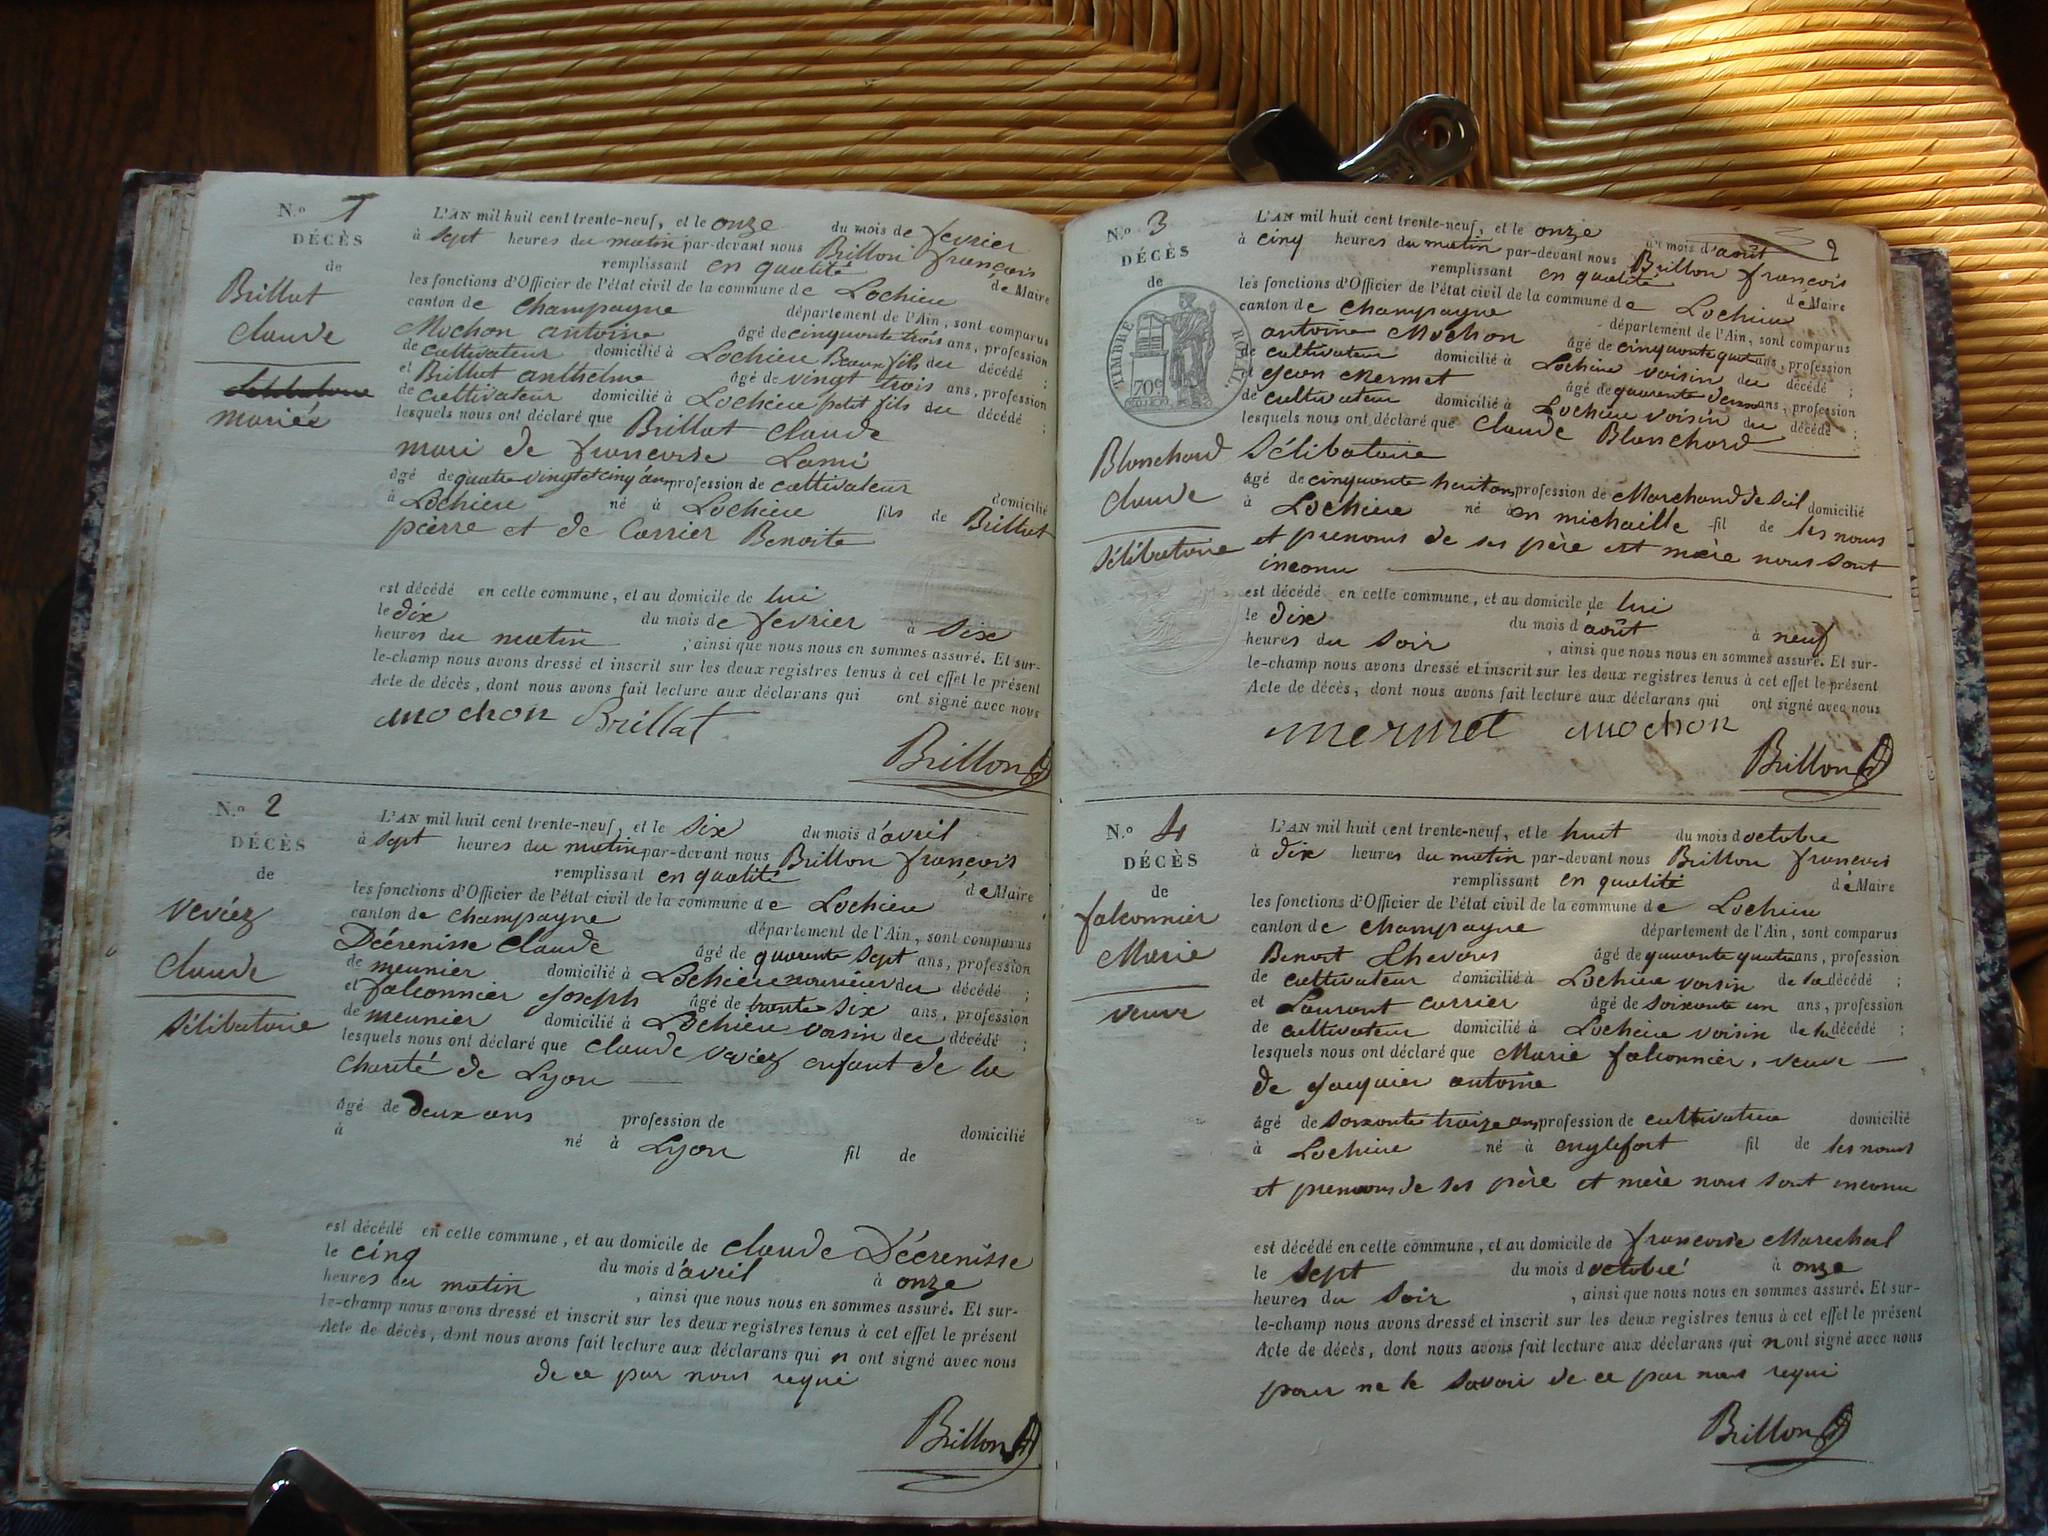 N.o 1
DÉCÈS
de
Brillat
claude
mariés
L'AN mil huit cent trente-neuf, et le onze du mois de fevrier
à sept heures du matin par-devant nous Brillon françois
remplissant en qualité de Maire
les fonctions d'Officier de l'état civil de la commune de Lochieu
canton de champagne département de l'Ain, sont comparus
Mochon antoine âgé de cinquante trois ans, profession
de cultivateur domicilié à Lochieu Beaux fils du décédé ;
et Brillat anthelme âgé de vingt trois ans, profession
de cultivateur domicilié à Lochieu petit fils du décédé ;
lesquels nous ont déclaré que Brillat claude
mari de francoise Lami
âgé de quatre vingt et cinq ans profession de cultivateur domicilié
à Lochieu né à Lochieu fils de Brillat
pierre et de Carrier Benoite
est décédé en cette commune, et au domicile de lui
le dix du mois de fevrier à six
heures du matin ; ainsi que nous nous en sommes assuré. Et sur-
le-champ nous avons dressé et inscrit sur les deux registres tenus à cet effet le présent
Acte de décès, dont nous avons fait lecture aux déclarans qui ont signé avec nous
mochon Brillat
Brillon
N.o 2
DÉCÈS
de
veviez
claude
sélibataire
L'AN mil huit cent trente-neuf, et le six du mois d'avril
à sept heures du matin par-devant nous Brillon françois
remplissant en qualité de Maire
les fonctions d'Officier de l'état civil de la commune de Lochieu
canton de champagne département de l'Ain, sont comparus
Décrenisse claude âgé de quarente sept ans, profession
de meunier domicilié à Lochieu nouricier du décédé ;
et falconnier joseph âgé de trente six ans, profession
de meunier domicilié à Lochieu voisin du décédé ;
lesquels nous ont déclaré que claude veviez enfant de la
charité de Lyon
âgé de deux ans profession de domicilié
à né à Lyon fil de
est décédé en cette commune, et au domicile de claude Décrenisse
le cinq du mois d'avril à onze
heures du matin , ainsi que nous nous en sommes assuré. Et sur-
le-champ nous avons dressé et inscrit sur les deux registres tenus à cet effet le présent
Acte de décès, dont nous avons fait lecture aux déclarans qui n ont signé avec nous
de ce par nous requi
Brillon
N.o 3
DÉCÈS
de
TIMBRE ROYAL
70c
Blanchard
claude
sélibataire
L'AN mil huit cent trente-neuf, et le onze du mois d'août
à cinq heures du matin par-devant nous Brillon françois
remplissant en qualité de Maire
les fonctions d'Officier de l'état civil de la commune de Lochieu
canton de champagne département de l'Ain, sont comparus
antoine Mochon âgé de cinquante quat ans, profession
de cultivateur domicilié à Lochieu voisin du décédé ;
et jean Mermet âgé de quarente deux ans, profession
de cultivateur domicilié à Lochieu voisin du décédé ;
lesquels nous ont déclaré que claude Blanchard
sélibataire
âgé de cinquante huit ans profession de Marchand de sel domicilié
à Lochieu né à en michaille fil de les noms
et prenoms de ses père et mère nous sont
inconu
est décédé en cette commune, et au domicile de lui
le dix du mois d'août à neuf
heures du soir , ainsi que nous nous en sommes assuré. Et sur-
le-champ nous avons dressé et inscrit sur les deux registres tenus à cet effet le présent
Acte de décès, dont nous avons fait lecture aux déclarans qui ont signé avec nous
mermet mochon
Brillon
N.o 4
DÉCÈS
de
falconnier
Marie
veuve
L'AN mil huit cent trente-neuf, et le huit du mois d octobre
à dix heures du matin par-devant nous Brillon francois
remplissant en qualité de Maire
les fonctions d'Officier de l'état civil de la commune de Lochieu
canton de champagne département de l'Ain, sont comparus
Benoit âgé de quarente quatre ans, profession
de cultivateur domicilié à Lochieu voisin de la décédé ;
et Laurent carrier âgé de soixante un ans, profession
de cultivateur domicilié à Lochieu voisin de la décédé ;
lesquels nous ont déclaré que Marie falconnier, veuve
de jacquier antoine
âgé de soixante traize ans profession de cultivatrice domicilié
à Lochieu né à englefort fil de les noms
et prenoms de ses père et mère nous sont inconu
est décédé en cette commune, et au domicile de francoise Marechal
le sept du mois d octobre à onze
heures du soir , ainsi que nous nous en sommes assuré. Et sur-
le-champ nous avons dressé et inscrit sur les deux registres tenus à cet effet le présent
Acte de décès, dont nous avons fait lecture aux déclarans qui n ont signé avec nous
pour ne le savoir de ce par nous requi
Brillon